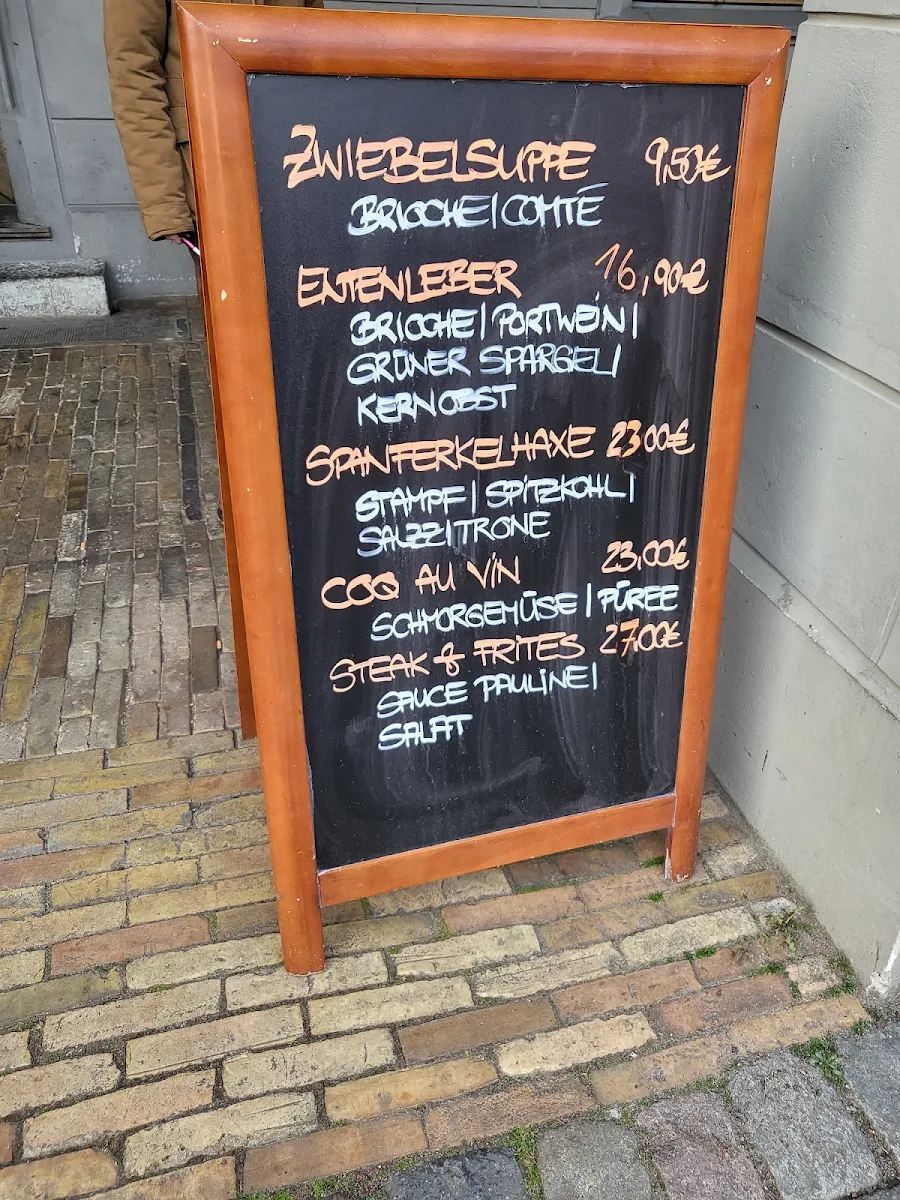 ZWIEBELSUPPE 9,50€
BRIOCHE | COMTÉ
ENTENLEBER 16,90€
BRIOCHE | PORTWEIN |
GRÜNER SPARGEL |
KERNOBST
SPANFERKELHAXE 23,00€
STAMPF | SPITZKOHL |
SALZZITRONE
COQ AU VIN 23,00€
SCHMORGEMÜSE | PÜREE
STEAK & FRITES 27,00€
SAUCE PAULINE |
SALAT